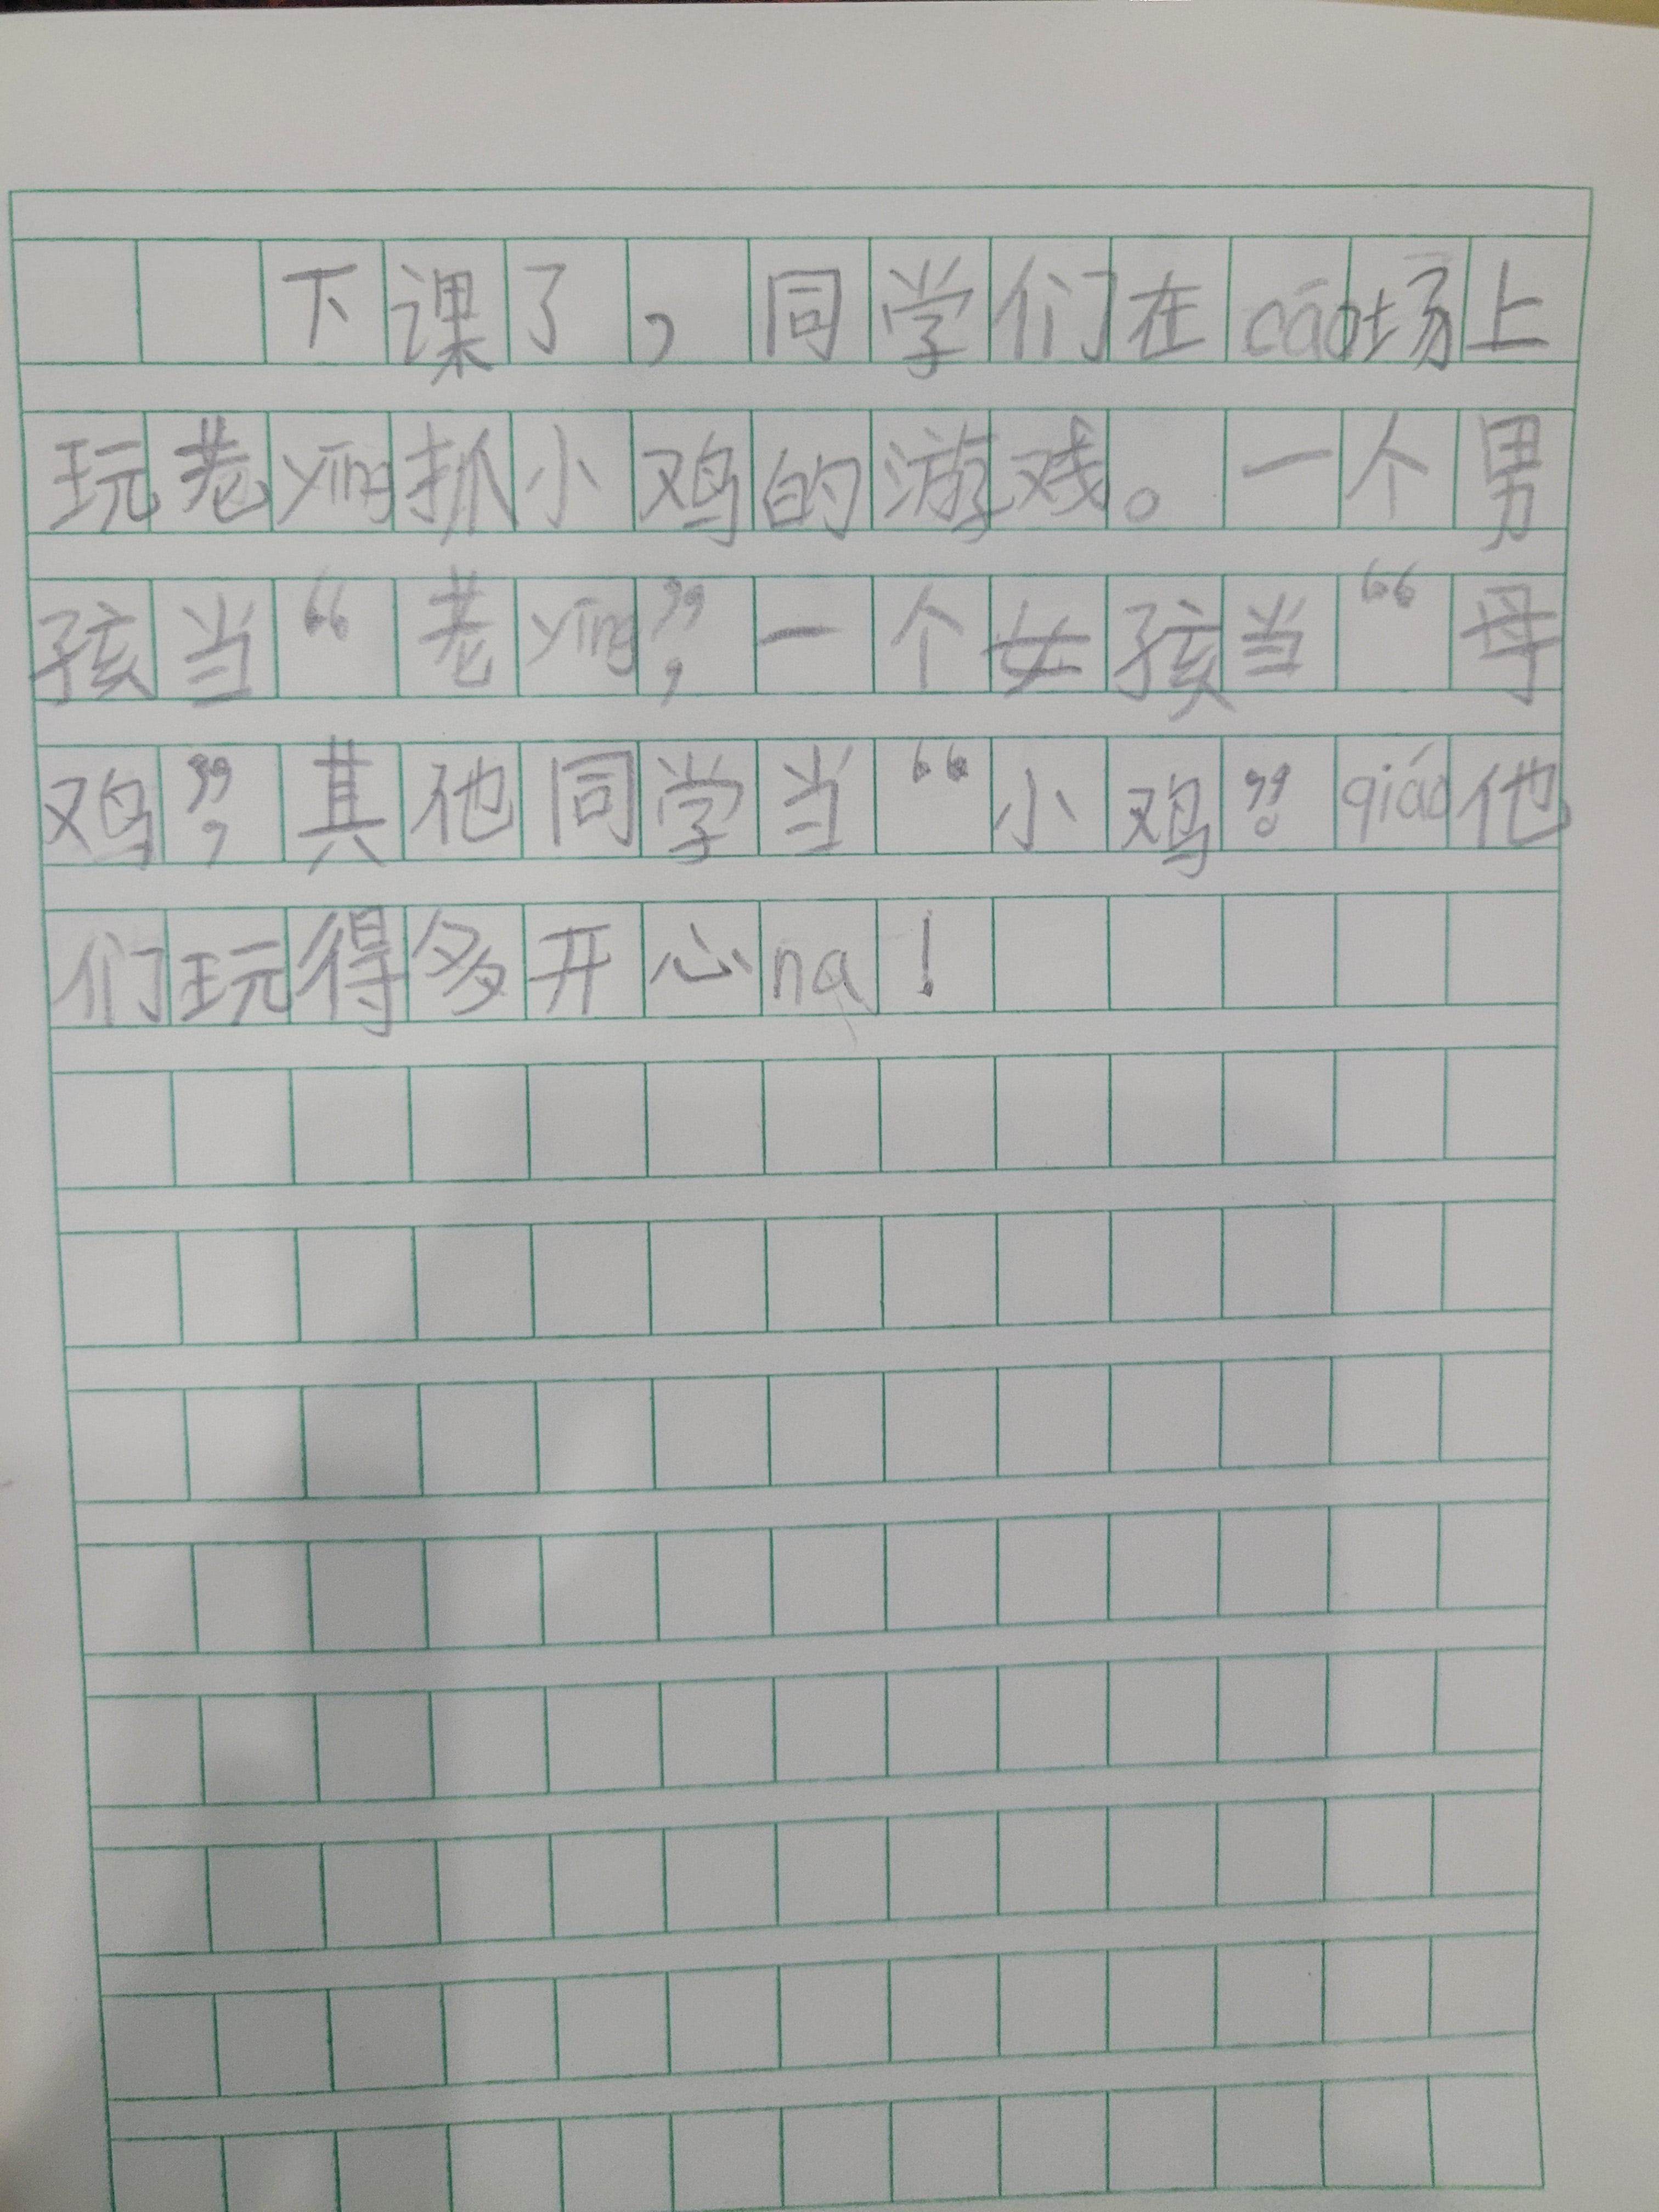 下课了，同学们在cāo场上
玩老yīng抓小鸡的游戏。一个男
孩当“老yīng”，一个女孩当“母
鸡”，其他同学当“小鸡”。qiáo他
们玩得多开心na！